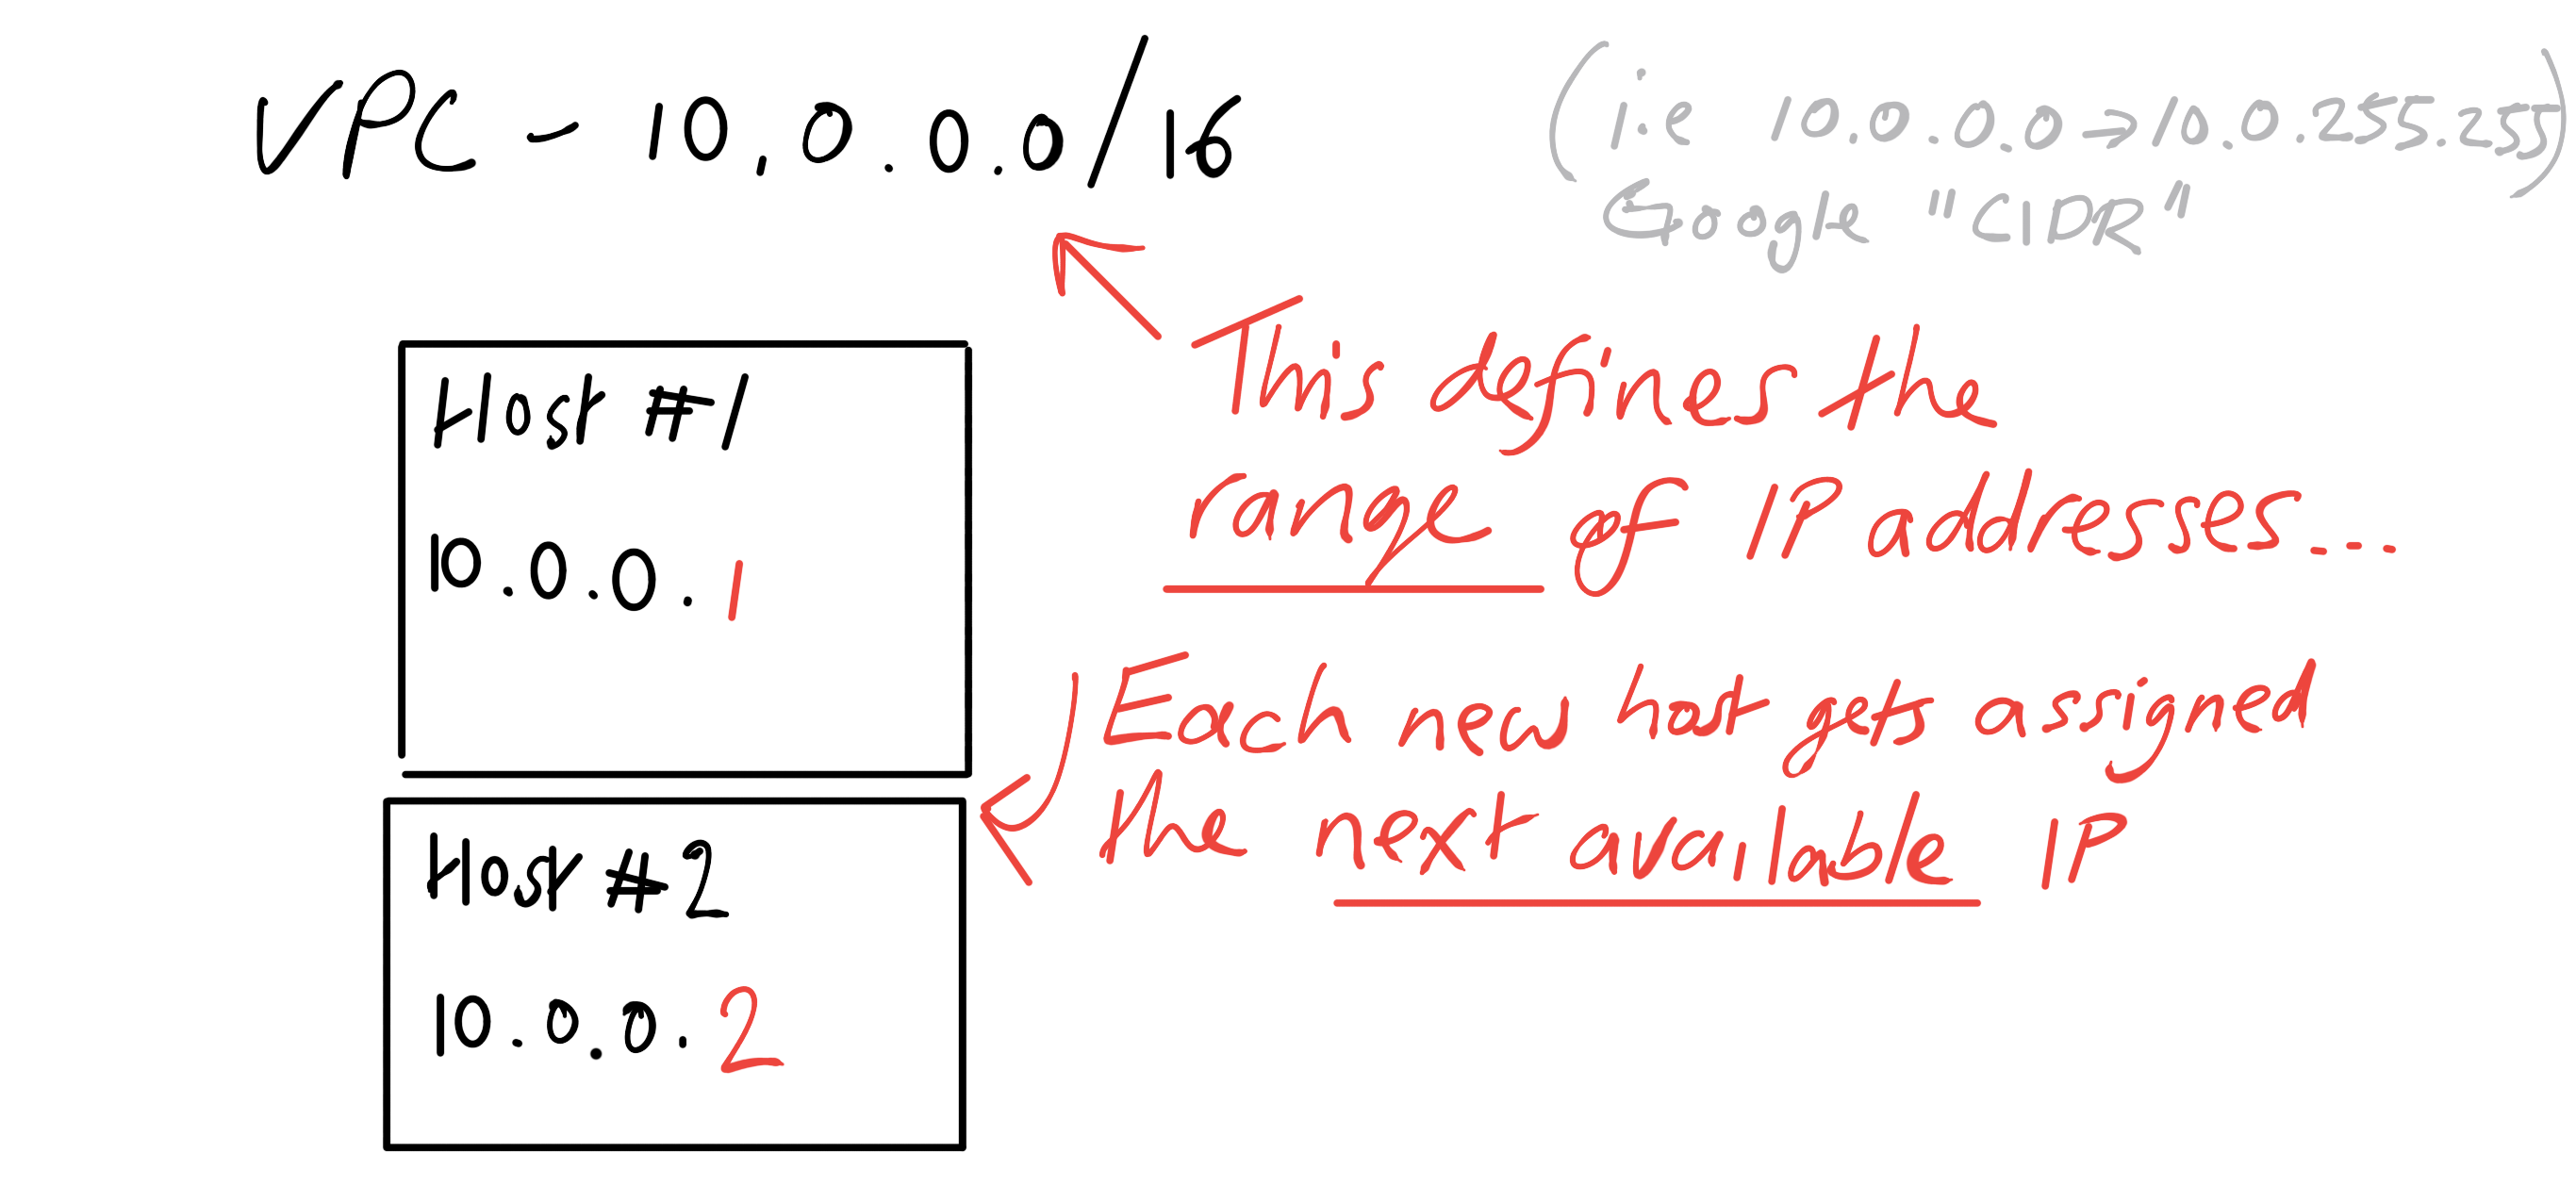 VPC - 10.0.0.0/16
(i.e 10.0.0.0→10.0.255.255)
Google "CIDR"
This defines the
range of IP addresses...
Host #1
10.0.0.1
Each new host gets assigned
the next available IP
Host #2
10.0.0.2